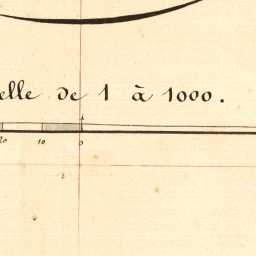 elle de 1 à 1000.
20 10 0